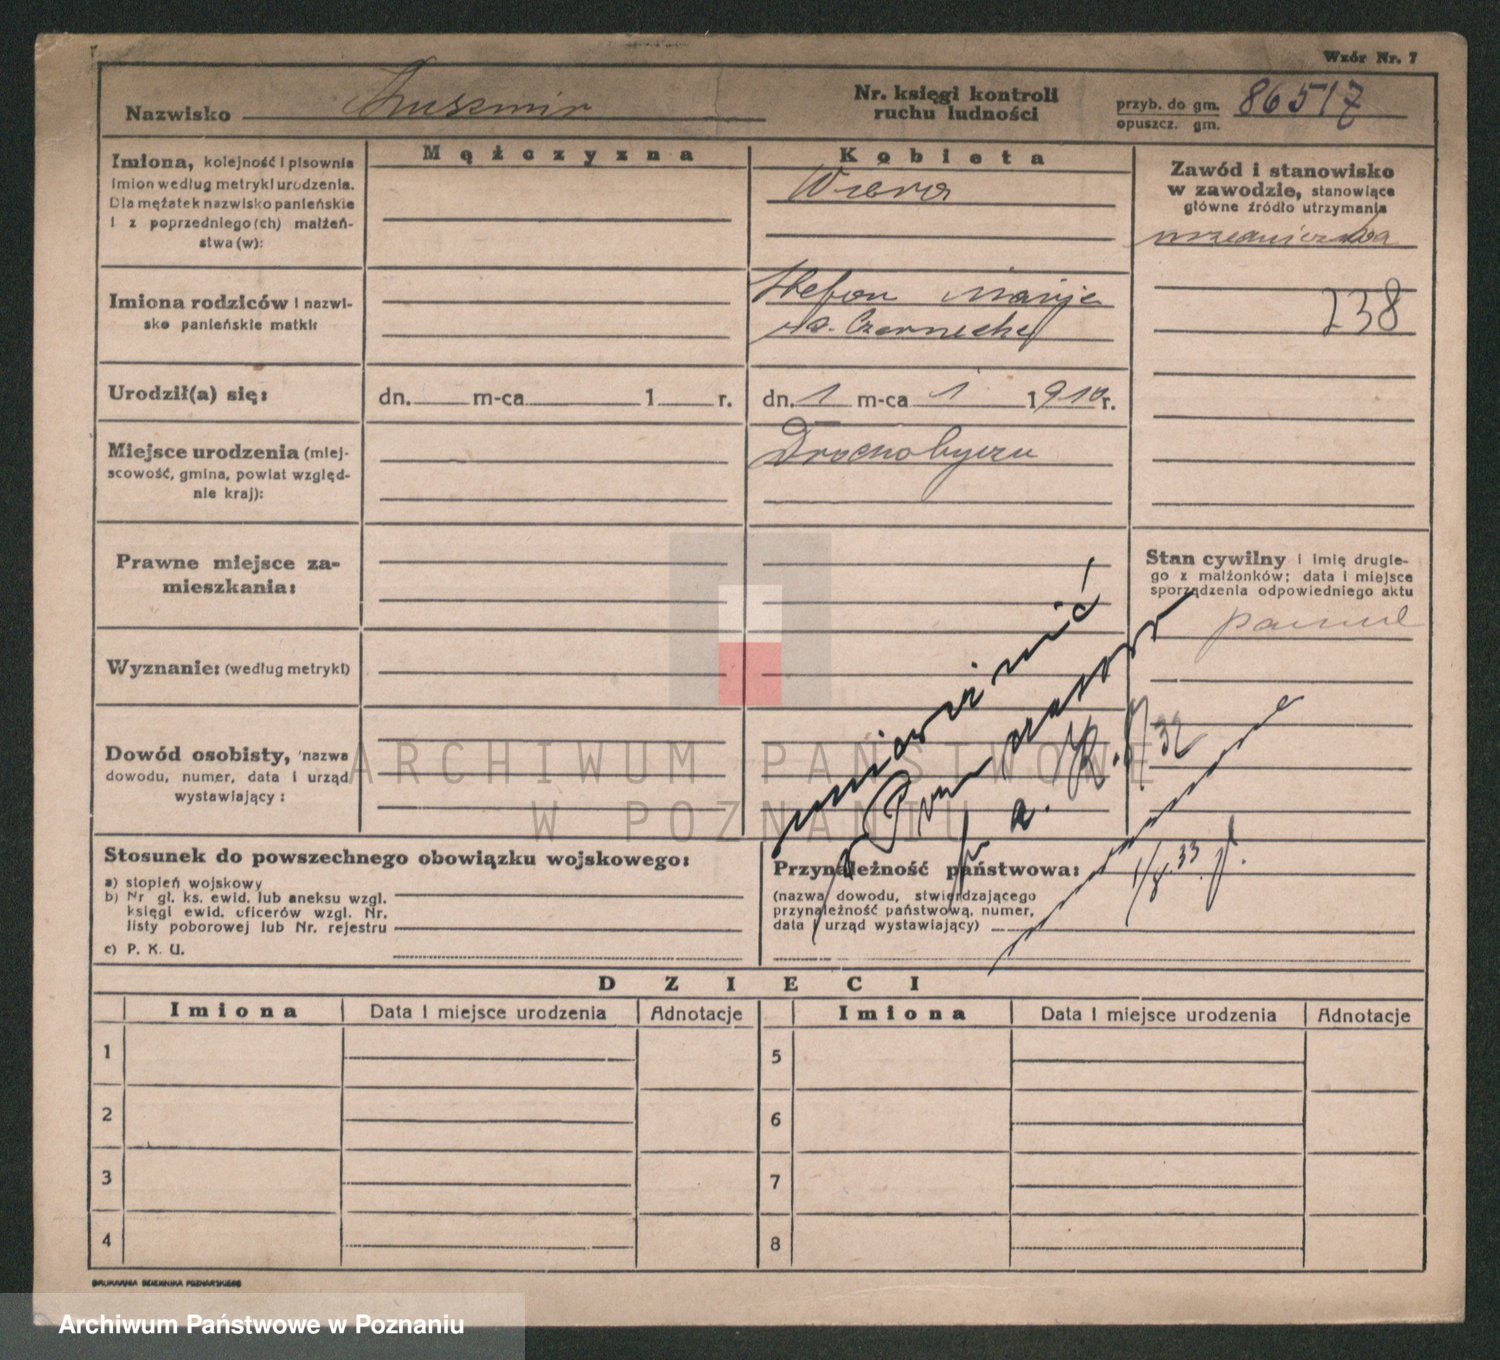 Wzór Nr. 7
Nazwisko Kuszmir
Nr. księgi kontroli
ruchu ludności
przyb. do gm. 86517
opuszcz. gm.
Imiona, kolejność i pisownia
imion według metryki urodzenia.
Dla mężatek nazwisko panieńskie
i z poprzedniego(ch) małżeń-
stwa(w):
Mężczyzna
Kobieta
Wiera
Zawód i stanowisko
w zawodzie, stanowiące
główne źródło utrzymania
urzędniczka
238
Imiona rodziców i nazwi-
sko panieńskie matki:
Stefan Marija
Urodził(a) się:
dn. m-ca 1 r.
dn. 1 m-ca 1 1910 r.
Miejsce urodzenia (miej-
scowość, gmina, powiat wzgléd-
nie kraj):
Drochobyczu
Prawne miejsce za-
mieszkania:
Stan cywilny i imię drugie-
go z małżonków; data i miejsce
sporządzenia odpowiedniego aktu
panna
Wyznanie: (według metryki)
Dowód osobisty, nazwa
dowodu, numer, data i urząd
wystawiający:
unieważnić
/32
ARCHIWUM PAŃSTWOWE
W POZNANIU
Stosunek do powszechnego obowiązku wojskowego:
a) stopień wojskowy
b) Nr gł. ks. ewid. lub aneksu wzgl.
księgi ewid. oficerów wzgl. Nr.
listy poborowej lub Nr. rejestru
c) P. K. U.
Przynależność państwowa:
(nazwa dowodu, stwierdzającego
przynależność państwową, numer,
data i urząd wystawiający)
1/8 33
DZIECI
Imiona Data i miejsce urodzenia Adnotacje Imiona Data i miejsce urodzenia Adnotacje
1 5
2 6
3 7
4 8
DRUKARNIA DZIENNIKA POZNAŃSKIEGO
Archiwum Państwowe w Poznaniu